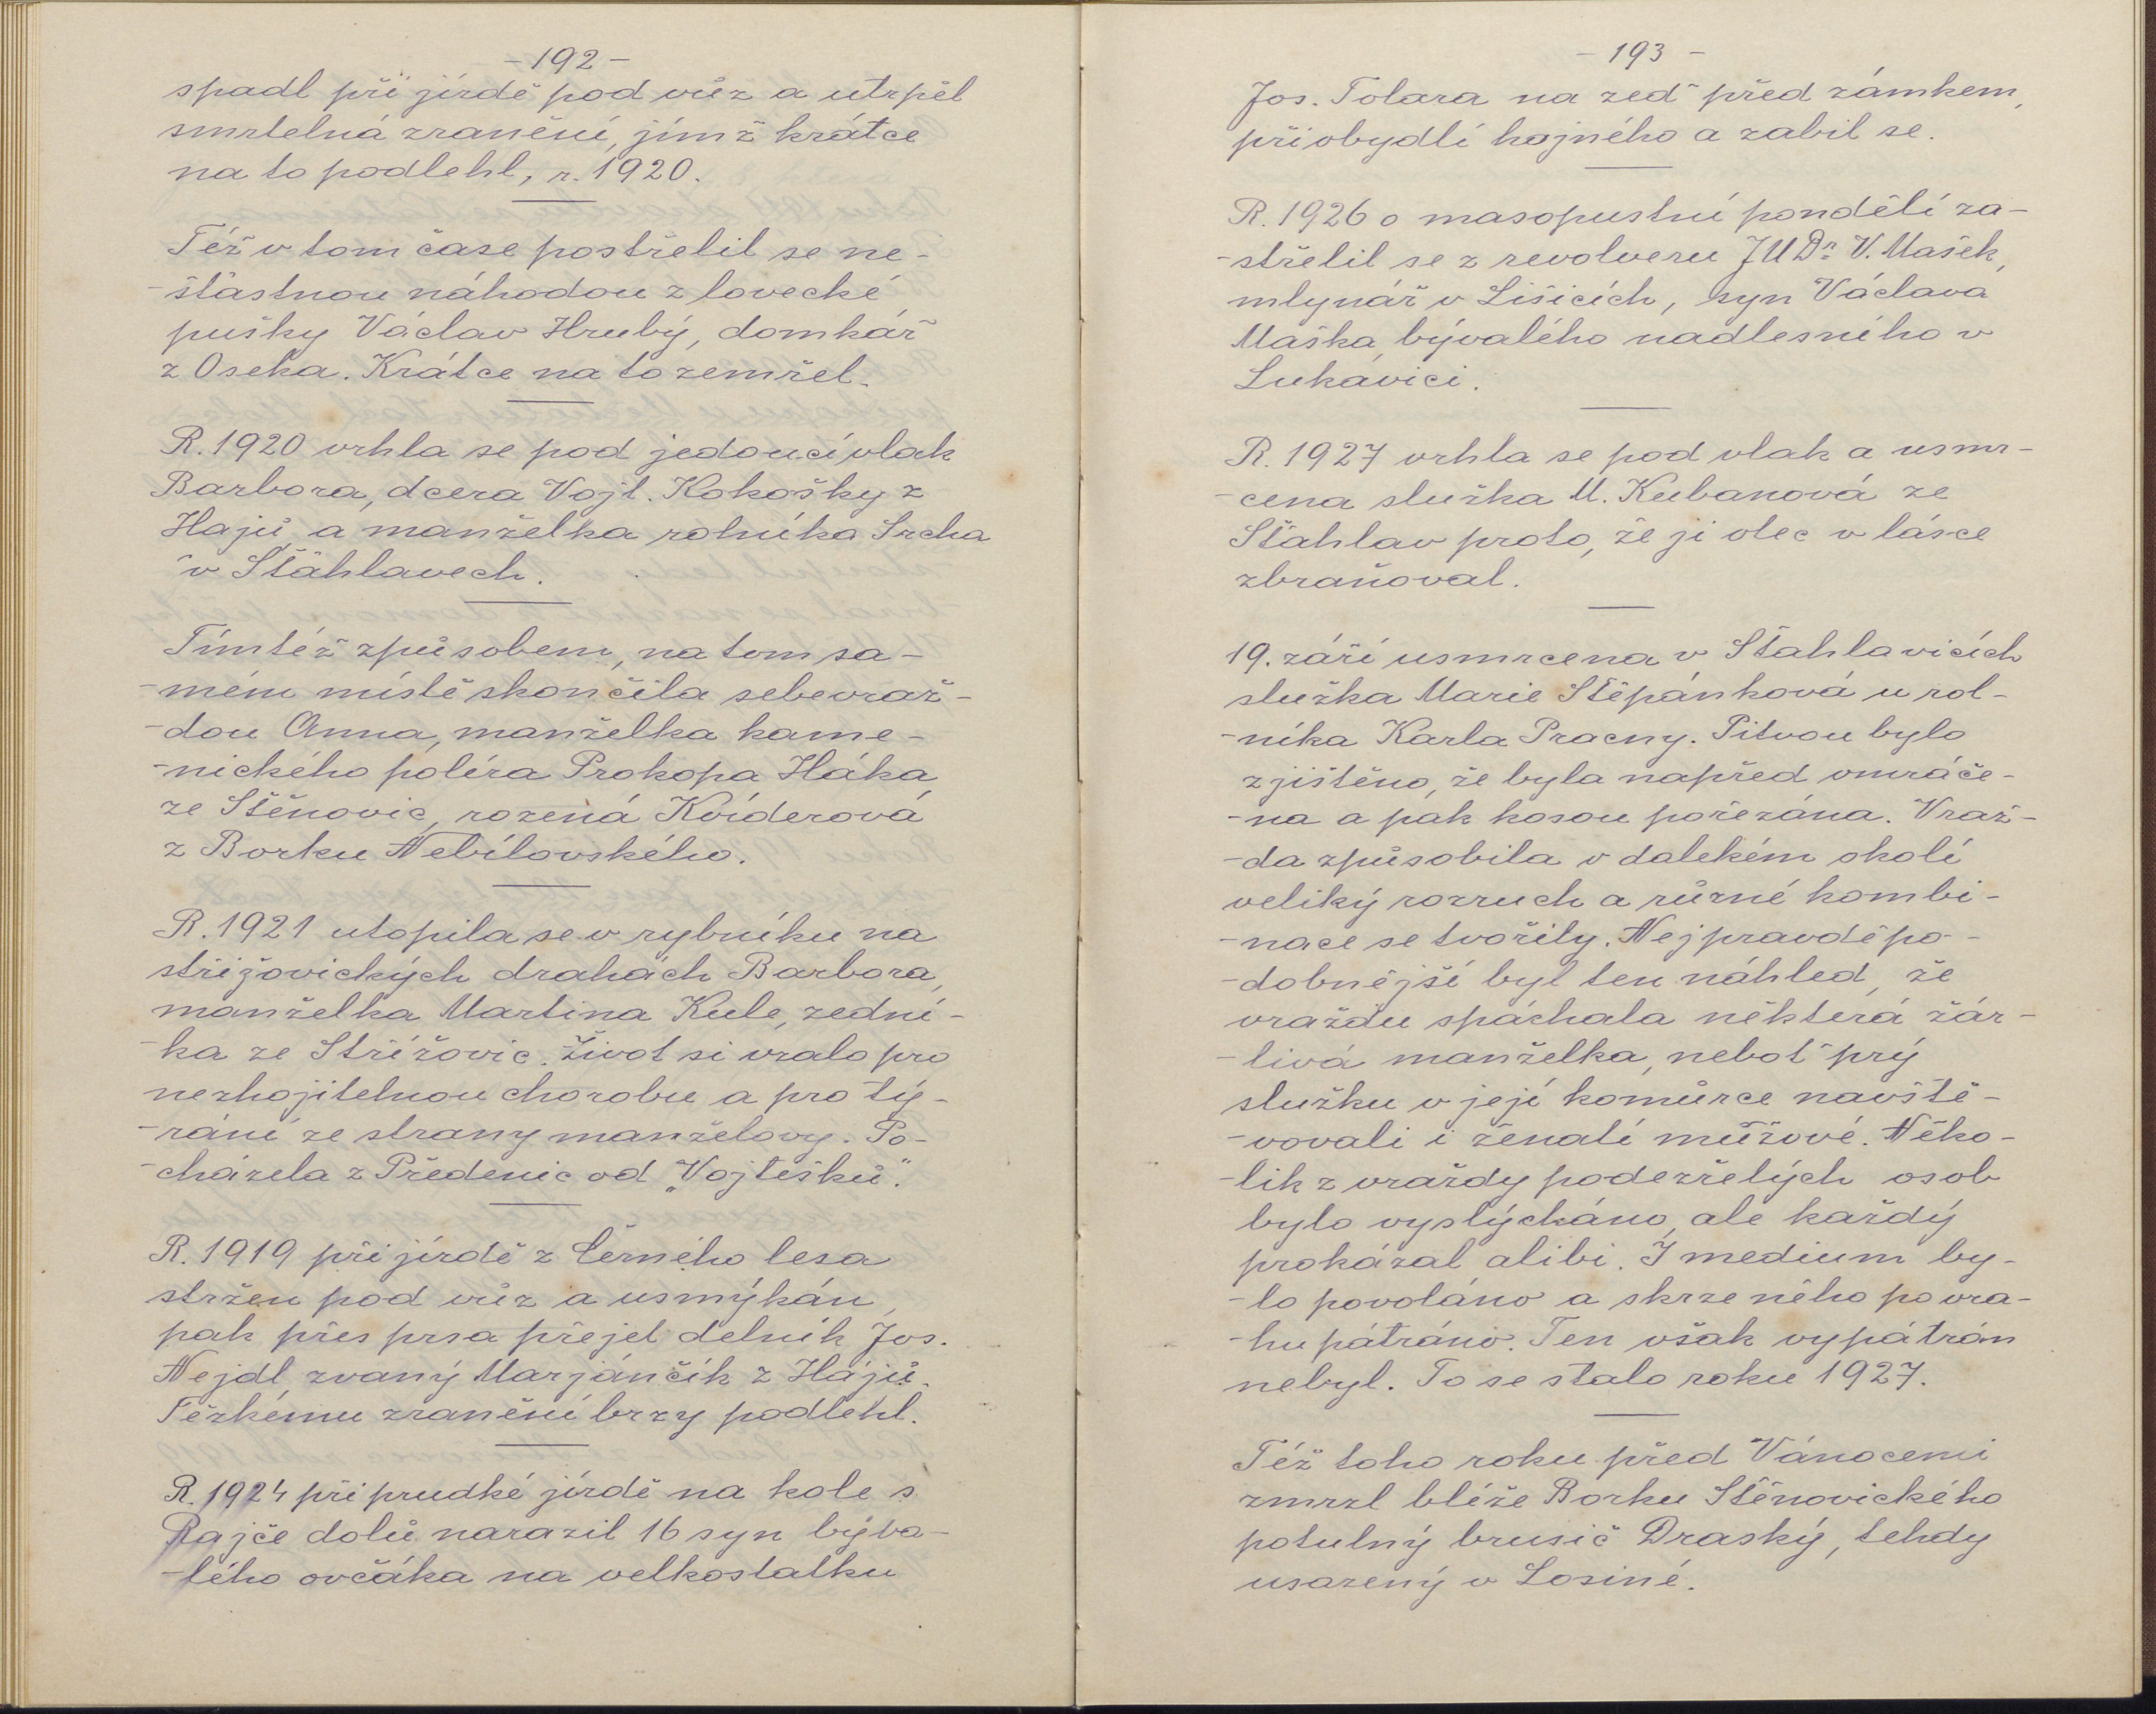 - 192 -
spadl při jízdě pod vůz a utrpěl
smrtelná zranění, jimž krátce
na to podlehl, r. 1920.
Též v tom čase postřelil se ne-
-šťastnou náhodou z lovecké
pušky Václav Hrubý, domkář
z Oseka. Krátce na to zemřel.
R. 1920 vrhla se pod jedoucí vlak
Barbora, dcera Vojt. Kokošky z
Hájů a manželka rolníka Srcha
v Šťáhlavech.
Tímtéž způsobem, na tom sa-
-mém místě skončila sebevraž-
-dou Anna, manželka kame-
-nického políra Prokopa Háka
ze Štěnovic, rozená Kviderová
z Borku Nebílovského.
R. 1921 utopila se v rybníku na
střížovických drahách Barbora,
manželka Martina Kule, zední-
-ka ze Střížovic. Život si vzala pro
nezhojitelnou chorobu a pro tý-
-rání ze strany manželovy. Po-
-cházela z Předenic od „Vojtěšků".
R. 1919 při jízdě z Černého lesa
stržen pod vůz a usmýkán,
pak přes prsa přejet dělník Jos.
Nejdl zvaný Marjánčík z Hájů.
Těžkému zranění brzy podlehl.
R. 1924 při prudké jízdě na kole s
Rajče dolů narazil 16 syn býva-
-lého ovčáka na velkostatku
- 193 -
Jos. Tolara na zeď před zámkem,
při obydlí hajného a zabil se.
R. 1926 o masopustní pondělí za-
-střelil se z revolveru JUDr. V. Mašek,
mlynář v Lišicích, syn Václava
Maška, bývalého nadlesního v
Lukavici.
R. 1927 vrhla se pod vlak a usmr-
-cena služka M. Kubanová ze
Šťáhlav proto, že jí otec v lásce
zbraňoval.
19. září usmrcena v Šťahlavicích
služka Marie Štěpánková u rol-
-níka Karla Pracny. Pitvou bylo
zjištěno, že byla napřed omráče-
-na a pak kosou pořezána. Vraž-
-da způsobila v dalekém okolí
veliký rozruch a různé kombi-
-nace se tvořily. Nejpravděpo-
-dobnější byl ten náhled, že
vraždu spáchala některá žár-
-livá manželka, neboť prý
služku v její komůrce navště-
-vovali i ženatí mužové. Něko-
-lik z vraždy podezřelých osob
bylo vyslýcháno, ale každý
prokázal alibi. I medium by-
-lo povoláno a skrze něho po vra-
-hu pátráno. Ten však vypátrán
nebyl. To se stalo roku 1927.
Též toho roku před Vánocemi
zmrzl blíže Borku Štěnovického
potulný brusič Draský, tehdy
usazený v Losiné.